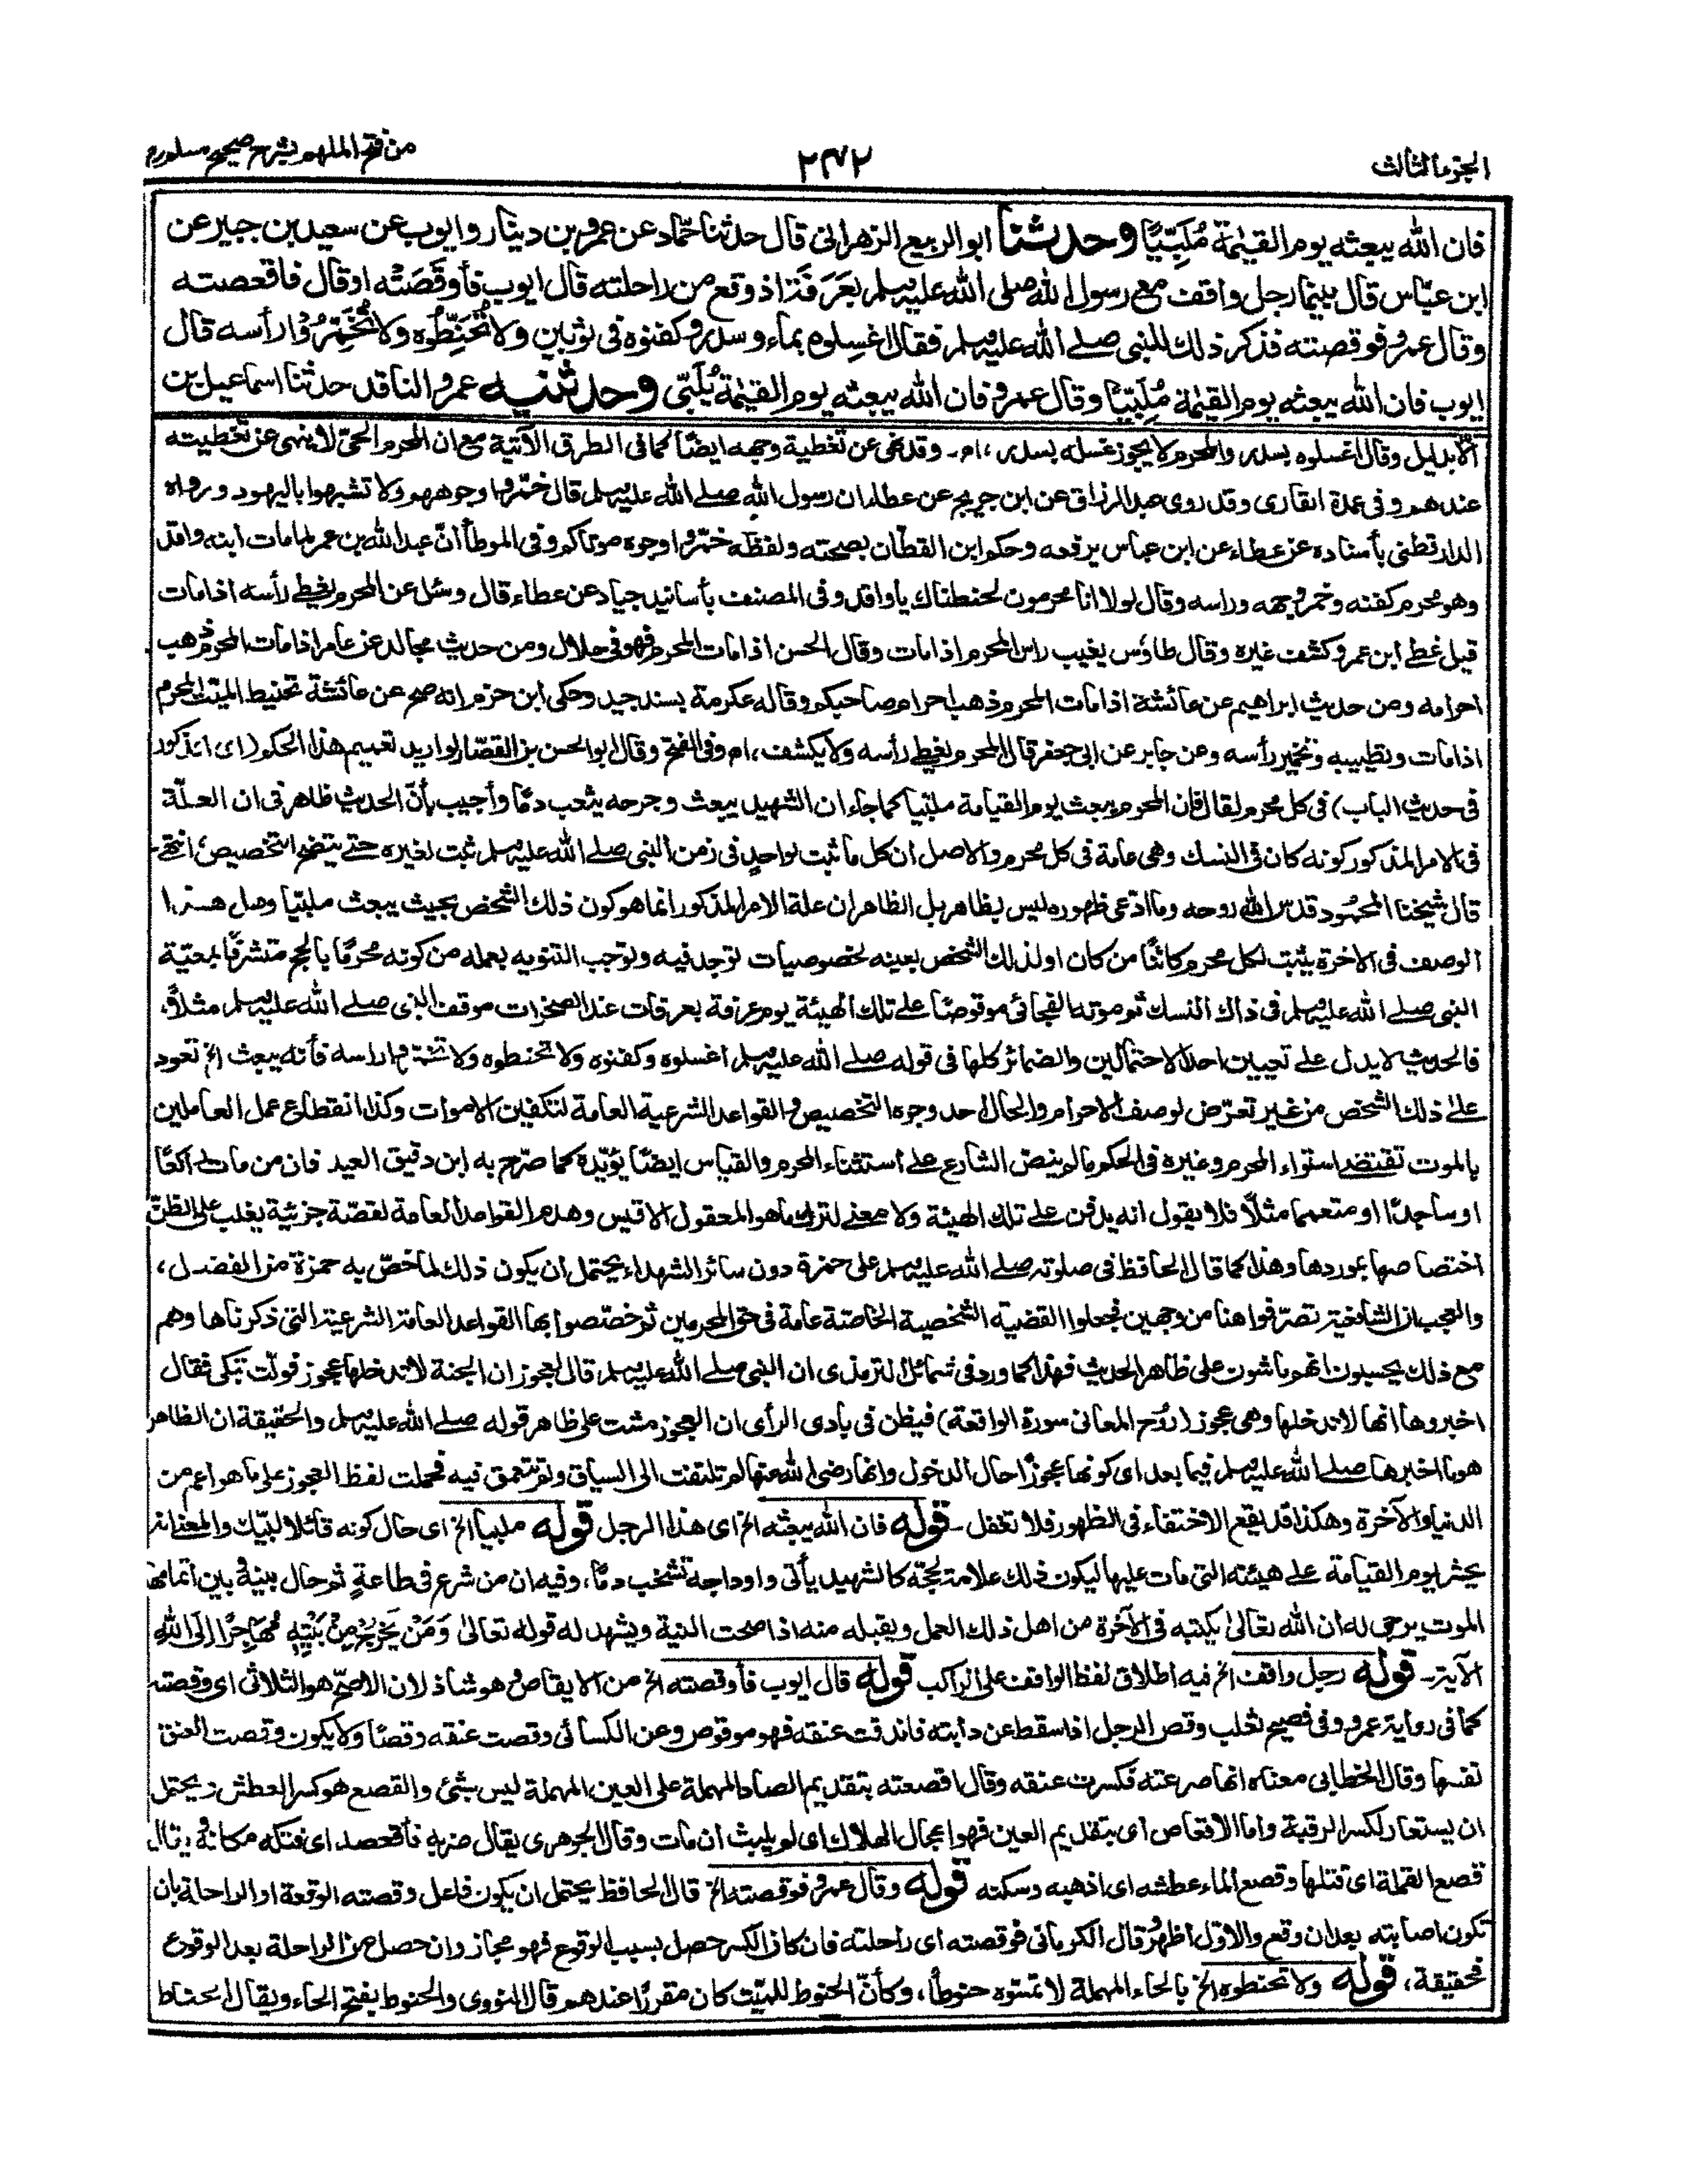 الجزء الثالث
٢٧٢
من فتح الملهم بشرح صحيح مسلم
فان الله يبعثه يوم القيٰمة مُلَبِّيًا وحدثنا ابو الربيع الزهرانى قال حدثنا حمّاد عن عمرو بن دينار وايوب عن سعيد بن جبير عن
ابن عبّاس قال بينما رجل واقف مع رسول الله صلى الله عليه وسلم بعَرَفَة اذ وقع من راحلته قال ايوب فأوقَصَتْه او قال فاقعصته
وقال عمرو فوقصته فذكر ذلك للنبى صلے الله عليه وسلم فقال اغسِلوه بماء وسدر وكفنوه فى ثوبين ولا تُحَنِّطُوه ولا تُخَمِّرُوْا رأسه قال
ايوب فان الله يبعثه يوم القيٰمة مُلَبِّيًا وقال عمرو فان الله يبعثه يوم القيٰمة يُلَبّى وحدثنيه عمرو الناقد حدثنا اسماعيل بن
الا بدليل وقال اغسلوه بسدر والمحرم لا يجوز غسله بسدر، اھ۔ وقد نهى عن تغطية وجهه ايضًا كما فى الطرق الآتية مع ان المحرم الحىّ لا ينهى عن تغطيته
عندهم وفى عمدة القارى وقد روى عبد الرزاق عن ابن جريج عن عطاء ان رسول الله صلے الله عليه وسلم قال خمّروا وجوههم ولا تشبهوا باليهود ورواه
الدارقطنى بأسناده عن عطاء عن ابن عباس يرفعه وحكم ابن القطّان بصحته ولفظه خمّروا وجوه موتاكم وفى الموطأ انّ عبد الله بن عمر لما مات ابنه واقد
وهو محرم كفنه وخمر وجهه وراسه وقال لولا انا محرمون لحنطناك يا واقد وفى المصنف بأسانيد جياد عن عطاء قال وسئل عن المحرم يغطى رأسه اذا مات
قيل غطے ابن عمر وكشف غيره وقال طاوٗس يغيب راس المحرم اذا مات وقال الحسن اذا مات المحرم فهو فى حلال ومن حديث مجالد عن عامر اذا مات المحرم ذهب
احرامه ومن حديث ابراهيم عن عائشة اذا مات المحرم ذهب احرام صاحبكم وقاله عكرمة بسند جيد وحكى ابن حزم انه صح عن عائشة تحنيط الميت المحرم
اذا مات وتطييبه وتخمير رأسه وعن جابر عن ابى جعفر قال المحرم يغطى رأسه ولا يكشف، اھ وفى الفتح وقال ابو الحسن بن القصّار لو اريد تعميم هذا الحكم (اى المذكور
فى حديث الباب) فى كل محرم لقال فان المحرم يبعث يوم القيامة ملبّيا كما جاء ان الشهيد يبعث وجرحه يثعب دمًا وأجيب بأنّ الحديث ظاهر فى ان العلّة
فى الامر المذكور كونه كان فى النسك وهى عامة فى كل محرم والاصل ان كل ما ثبت لواحدٍ فى زمن النبى صلے الله عليه وسلم ثبت لغيره حتے يتضح التخصيص، انتهى۔
قال شيخنا المحمُود قدس الله روحه وما ادّعى ظهوره ليس بظاهر بل الظاهر ان علة الامر المذكور انما هو كون ذلك الشخص بحيث يبعث ملبّيا وهل هذا
الوصف فى الآخرة يثبت لكل محرم كائنًا من كان او لذلك الشخص بعينه لخصوصيات توجد فيه وتوجب التنويه بعمله من كونه محُرمًا بالحج متشرفًا بمعيّة
النبى صلے الله عليه وسلم فى ذاك النسك ثم موته الفجائى موقوصًا علے تلك الهيئة يوم عرفة بعرفات عند الصخرات موقف النبى صلے الله عليه وسلم مثلاً،
فالحديث لا يدل علے تعيين احد الاحتمالين والضمائر كلها فى قوله صلے الله عليه وسلم اغسلوه وكفنوه ولا تحنطوه ولا تخمّروا راسه فانه يبعث الخ تعود
علےٰ ذلك الشخص من غير تعرّض لوصف الاحرام والحال احد وجوه التخصيص والقواعد الشرعية العامة لتكفين الاموات وكذا انقطاع عمل العاملين
بالموت تقتضى استواء المحرم وغيره فى الحكم ما لم ينص الشارع علے أستثناء المحرم والقياس ايضًا يؤيّده كما صرّح به ابن دقيق العيد فان من مات راكعًا
او ساجدًا او متعمما مثلاً فلا يقول انه يدفن علے تلك الهيئة ولا معنے لترك ما هو المعقول الاقيس وهدم القواعد العامة لقصّة جزئية يغلب على الظنّ
اختصاصها بموردها وهذا كما قال الحافظ فى صلوته صلے الله عليه وسلم على حمزة دون سائر الشهداء يحتمل ان يكون ذلك لما خصّ به حمزة من الفضل،
والعجب ان الشافعية تصرّفوا هنا من وجهين فجعلوا القضية الشخصية الخاصّة عامة فى حق المحرمين ثم خصّصوا بها القواعد العامة الشرعية التى ذكرناها وهم
مع ذلك يحسبون انهم ماشون على ظاهر الحديث فهذا كما ورد فى شمائل الترمذى ان النبى صلے الله عليه وسلم قال لعجوز ان الجنة لا تدخلها عجوز فولّت تبكى فقال
اخبروها انها لا تدخلها وهى عجوز (رُوح المعانى سورة الواقعة) فيظن فى بادى الرأى ان العجوز مشت على ظاهر قوله صلے الله عليه وسلم والحقيقة ان الظاهر
هو ما اخبرها صلے الله عليه وسلم فيما بعد اى كونها عجوزًا حال الدخول وانها رضى الله عنها لم تلتفت الى السياق ولم تتعمق فيه فحملت لفظ العجوز على ما هو اعم من
الدنيا والآخرة وهكذا قد يقع الاختفاء فى الظهور فلا تغفل۔ قوله فان الله يبعثه الخ اى هذا الرجل قوله ملبيا الخ اى حال كونه قائلا لبّيك والمعنے انه
يحشر يوم القيامة علے هيئته التى مات عليها ليكون ذلك علامة لحجّه كالشهيد يأتى واوداجه تشخب دمًا، وفيه ان من شرع فى طاعةٍ ثم حال بينه وبين اتمامها
الموت يرجى له ان الله تعالىٰ يكتبه فى الآخرة من اهل ذلك العمل ويقبله منه اذا صحت النية ويشهد له قوله تعالىٰ وَمَنْ يَخْرُجْ مِنْ بَيْتِهٖ مُهَاجِرًا اِلَى اللهِ
الآية۔ قوله رجل واقف الخ فيه اطلاق لفظ الواقف على الراكب قوله قال ايوب فأوقصته الخ من الايقاص وهو شاذ لان الاصحّ هو الثلاثى اى وقصته
كما فى رواية عمرو وفى فصيح ثعلب وقص الرجل اذا سقط عن دابته فاندقت عنقه فهو موقوص وعن الكسائى وقصت عنقه وقصًا ولا يكون وقصت العنق
نفسها وقال الخطابى معناه انها صرعته فكسرت عنقه وقال اقصعته بتقديم الصاد المهملة على العين المهملة ليس بشئ والقصع هو كسر العطش ويحتمل
ان يستعار لكسر الرقبة واما الاقعاص اى بتقديم العين فهو اعجال الهلاك اى لم يلبث ان مات وقال الجوهرى يقال ضربه فأقعصه اى قتله مكانه ويقال
قصع القملة اى قتلها وقصع الماء عطشه اى اذهبه وسكنه قوله وقال عمرو فوقصته الخ قال الحافظ يحتمل ان يكون فاعل وقصته الوقعة او الراحلة بان
تكون اصابته بعد ان وقع والاوّل اظهر وقال الكرمانى فوقصته اى راحلته فان كان الكسر حصل بسبب الوقوع فهو مجاز وان حصل من الراحلة بعد الوقوع
فحقيقة، قوله ولا تحنطوه الخ بالحاء المهملة لا تمسّوه حنوطاً، وكأنّ الحنوط للميّت كان مقررًا عندهم قال النووى والحنوط بفتح الحاء ويقال الحناط